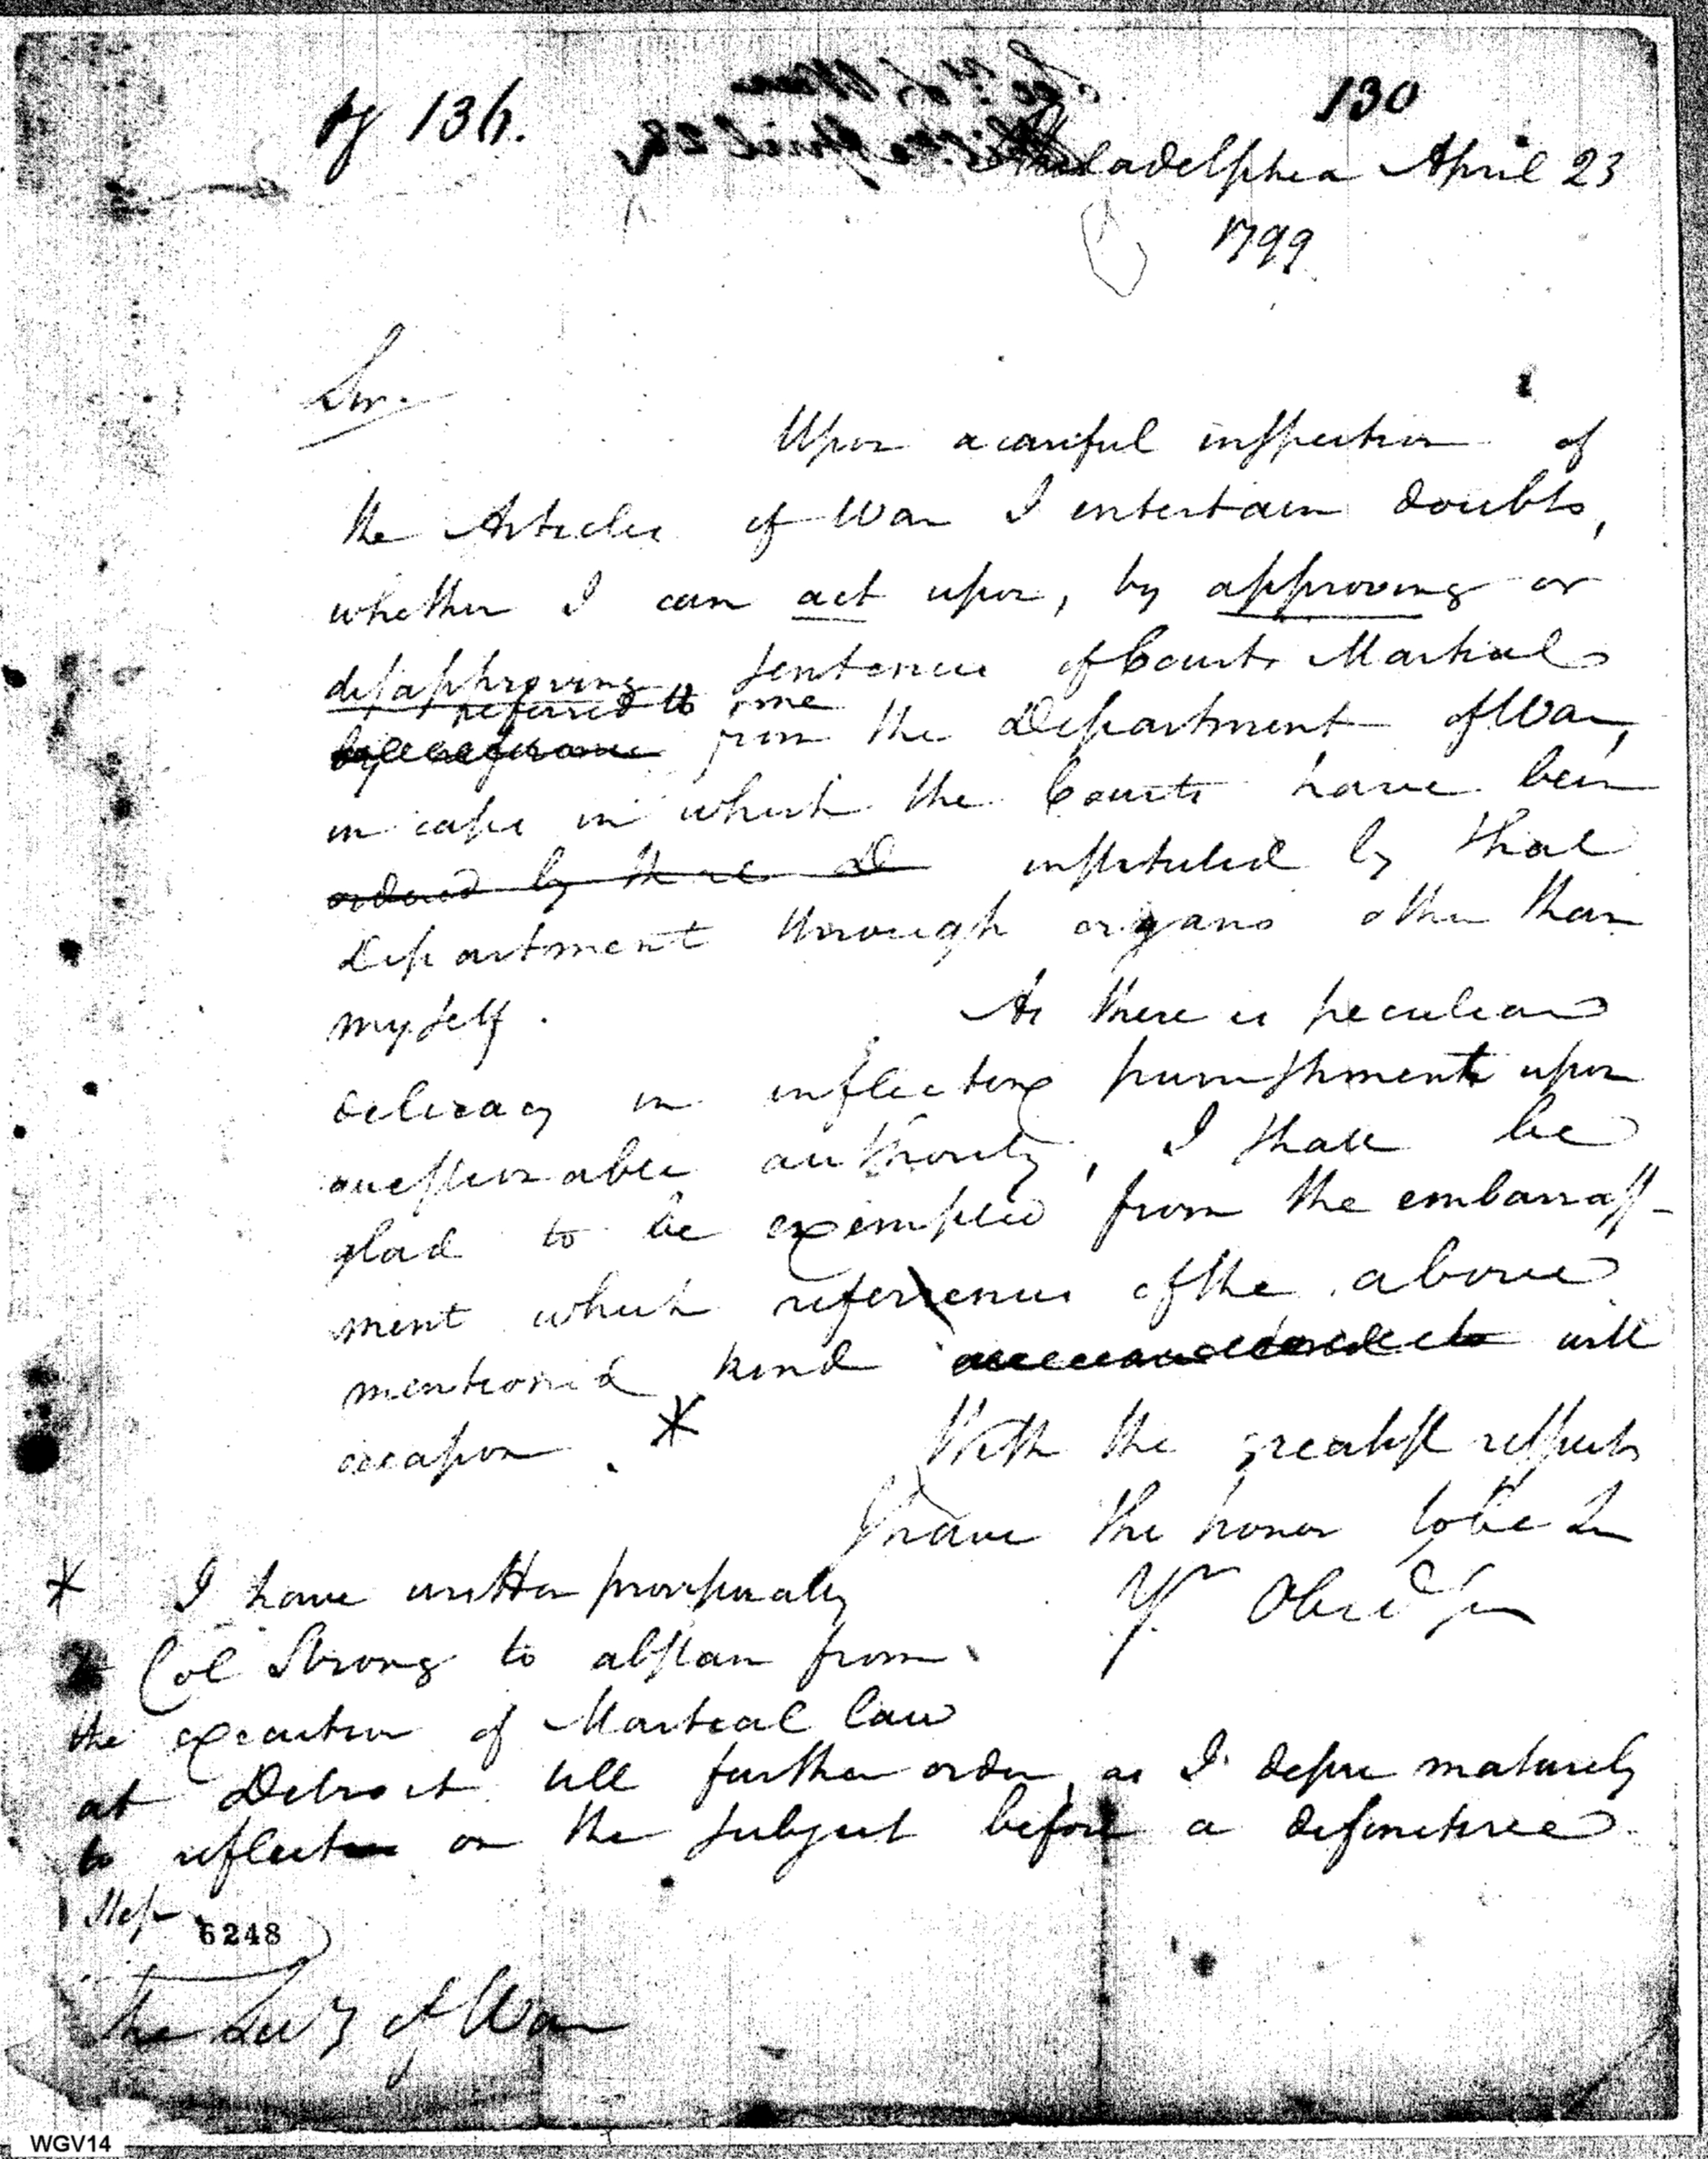 pg 136.
130
Philadelphia April 23
1799
Sir.
Upon a careful inspection of
the Articles of War I entertain doubts,
whether I can act upon, by approving or
disapproving sentences of Courts Martial
referred to me
from the Department of War,
in cases in which the Courts have been
ordered by that D instituted by that
Department through organs other than
myself.
As there is peculiar
delicacy in inflicting punishment upon
questionable authority, I shall be
glad to be exempted from the embarrass-
ment which references of the above
mentioned kind will
occasion. *
With the greatest respects
I have the honor to be Sir
Yr. Obed Ser
* I have written provisionally
to Col Strong to abstain from
the execution of Martial law
at Detroit till further order, as I desire maturely
to reflect on the subject before a definitive
step
6248
The Secy of War
WGV14